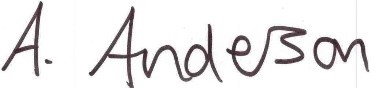 A. Anderson